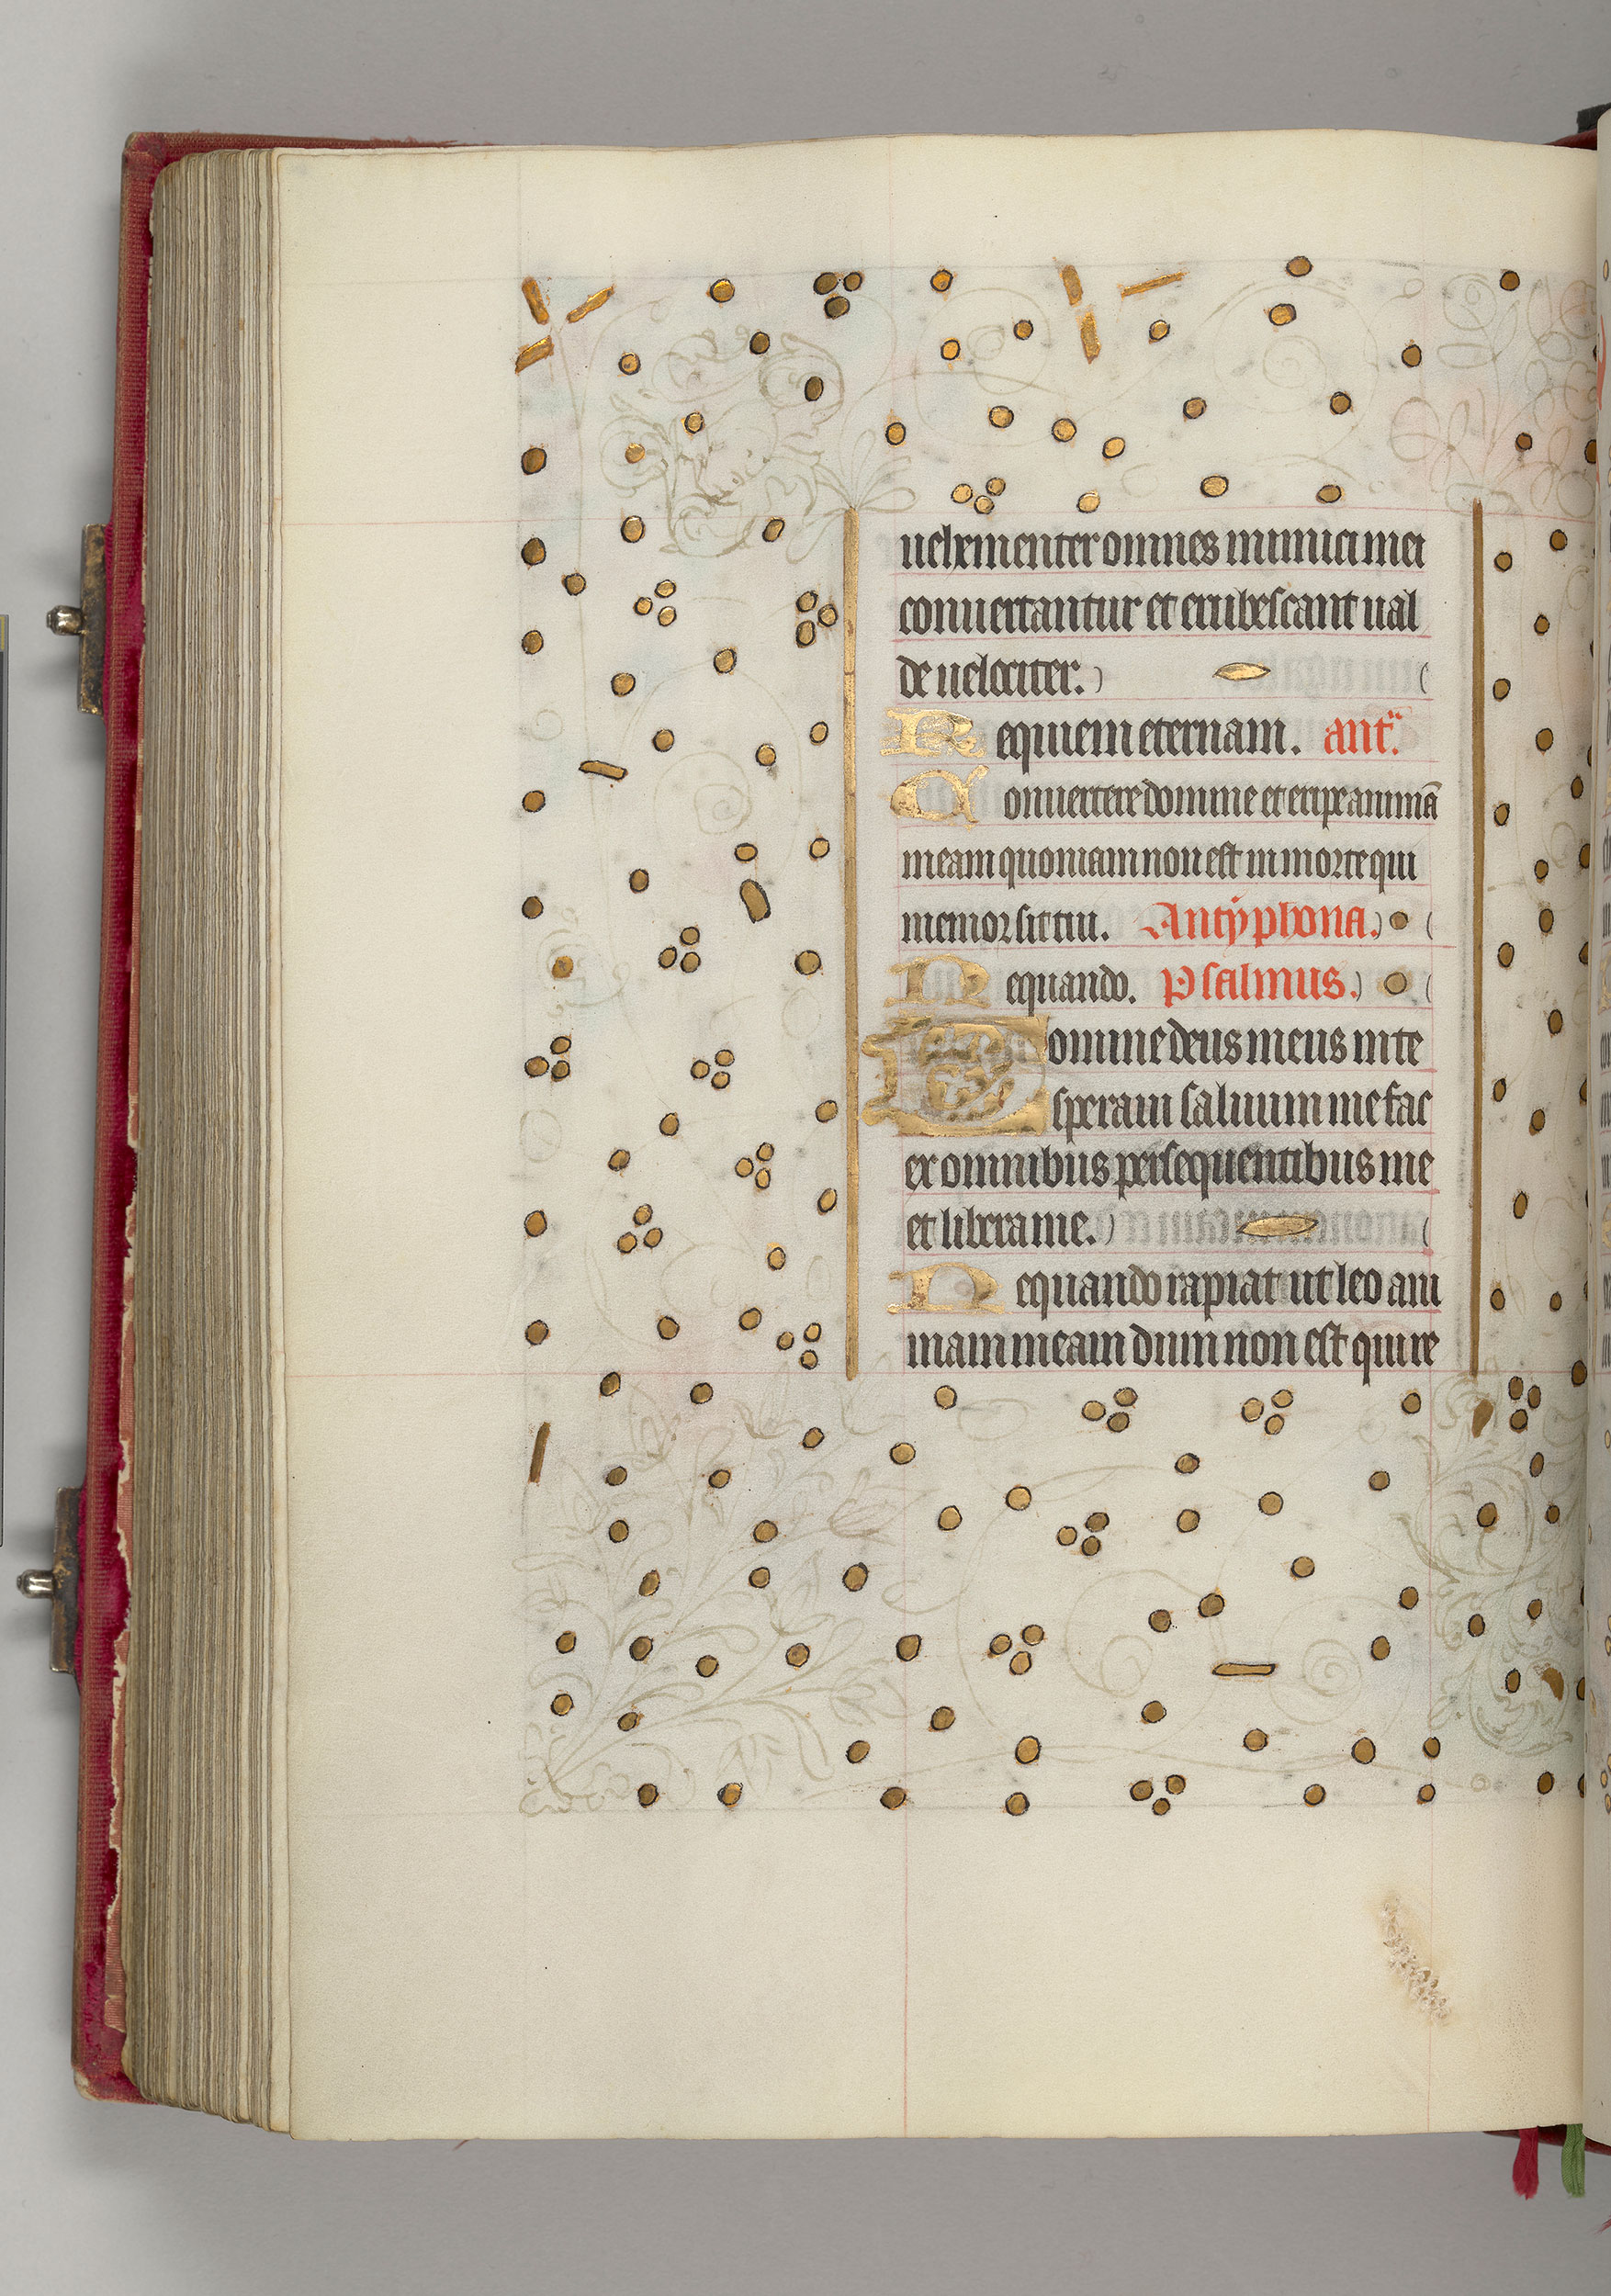 uehementer omnes inimici mei
conuertantur et erubescant ual
de uelociter.
Requiem eternam. antᵃ.
Conuertere domine et eripe animā
meam quoniam non est in morte qui
memor sit tui. Antyphona.
Nequando. Psalmus.
Domine deus meus in te
speraui saluum me fac
ex omnibus persequentibus me
et libera me.
Nequando rapiat ut leo ani
mam meam dum non est qui re